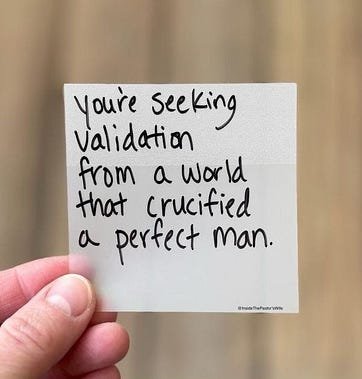 you're seeking
validation
from a world
that crucified
a perfect man.
@InsideThePastor'sWife